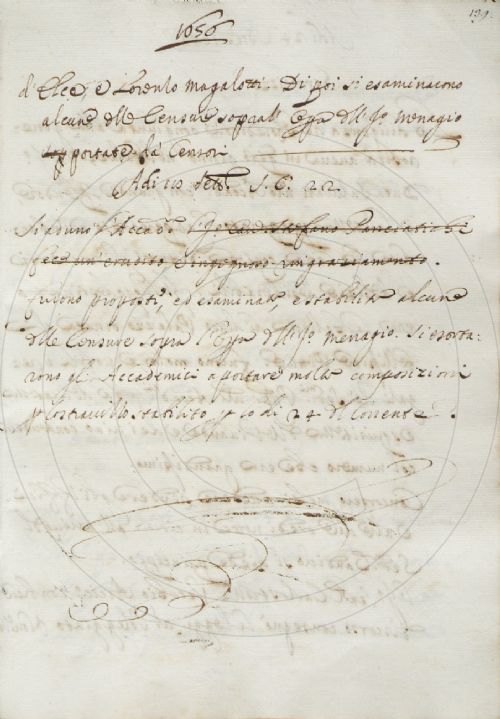 139.
1656
d'Elce, e Lorenzo Magalotti. Di poi si esaminarono
alcune delle Censure sopra l'Egra del Sr. Menagio
portate da' Censori
Adi 10 dett. S. C. 22
Si adunò l'Accad. Il Sr. Cav. Stefano Panciatichi
fece un' erudito e ingegnoso ringraziamento.
furono proposti, ed esaminate, e stabilite alcune
delle Censure sopra l'Egra del Sr. Menagio. Si esorta-
rono gli Accademici a portare molte composizioni
p lo stravizzo stabilito p il dì 24 del Corrente.